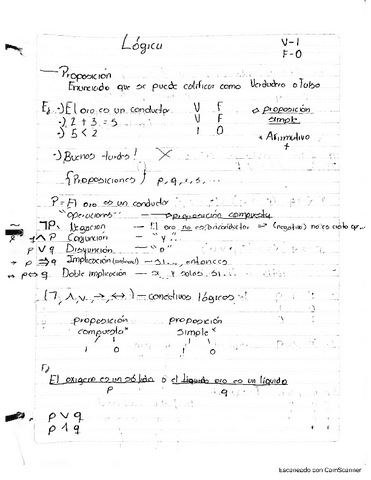 Lógica
V-1
F-0
Proposición
Enunciado que se puede calificar como Verdadero o Falso
Ej ·) El oro es un conductor V F
·) 2 + 3 = 5 V F
·) 5 < 2 1 0
* proposición simple
* Afirmativo +
·) Buenos tardes! X
{Proposiciones} p, q, r, s, ...
P = El oro es un conductor
"operaciones" — proposición compuesta
~ ¬P. Negación — El oro no es un conductor → (negativo) no es cierto que...
∧ P Conjunción — "y"
p ∨ q Disyunción — "o"
→ p ⇒ q Implicación — si..., entonces
↔ p ⇔ q Doble implicación — si y solo si...
(¬, ∧, ∨, →, ↔) — conectivos lógicos
proposición compuesta"
1 0
proposición simple"
1 0
Ej
El oxigeno es un sólido o el liquido oro es un liquido
p q
p ∨ q
p ∧ q
Escaneado con CamScanner